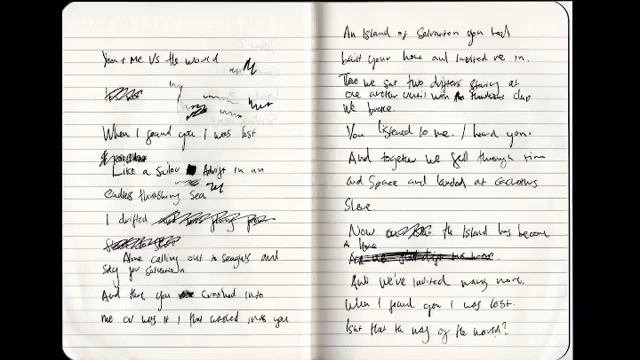 You + Me Vs the world
When I found you I was lost
Like a Sailor Adrift in an
endless thrashing Sea
I drifted
Alone calling out to Seagulls and
Sky for Salvation
And then you Crashed into
me or was it I that washed into you
An Island of Salvation you had
built your home and invited me in.
we sat two drifters staring at
one another until
We broke.
You listened to me. I heard you.
And together we fell through time
and Space and landed at
Now the Island has become
a Home
And we've invited many more.
When I found you I was lost.
Isnt that the way of the world?